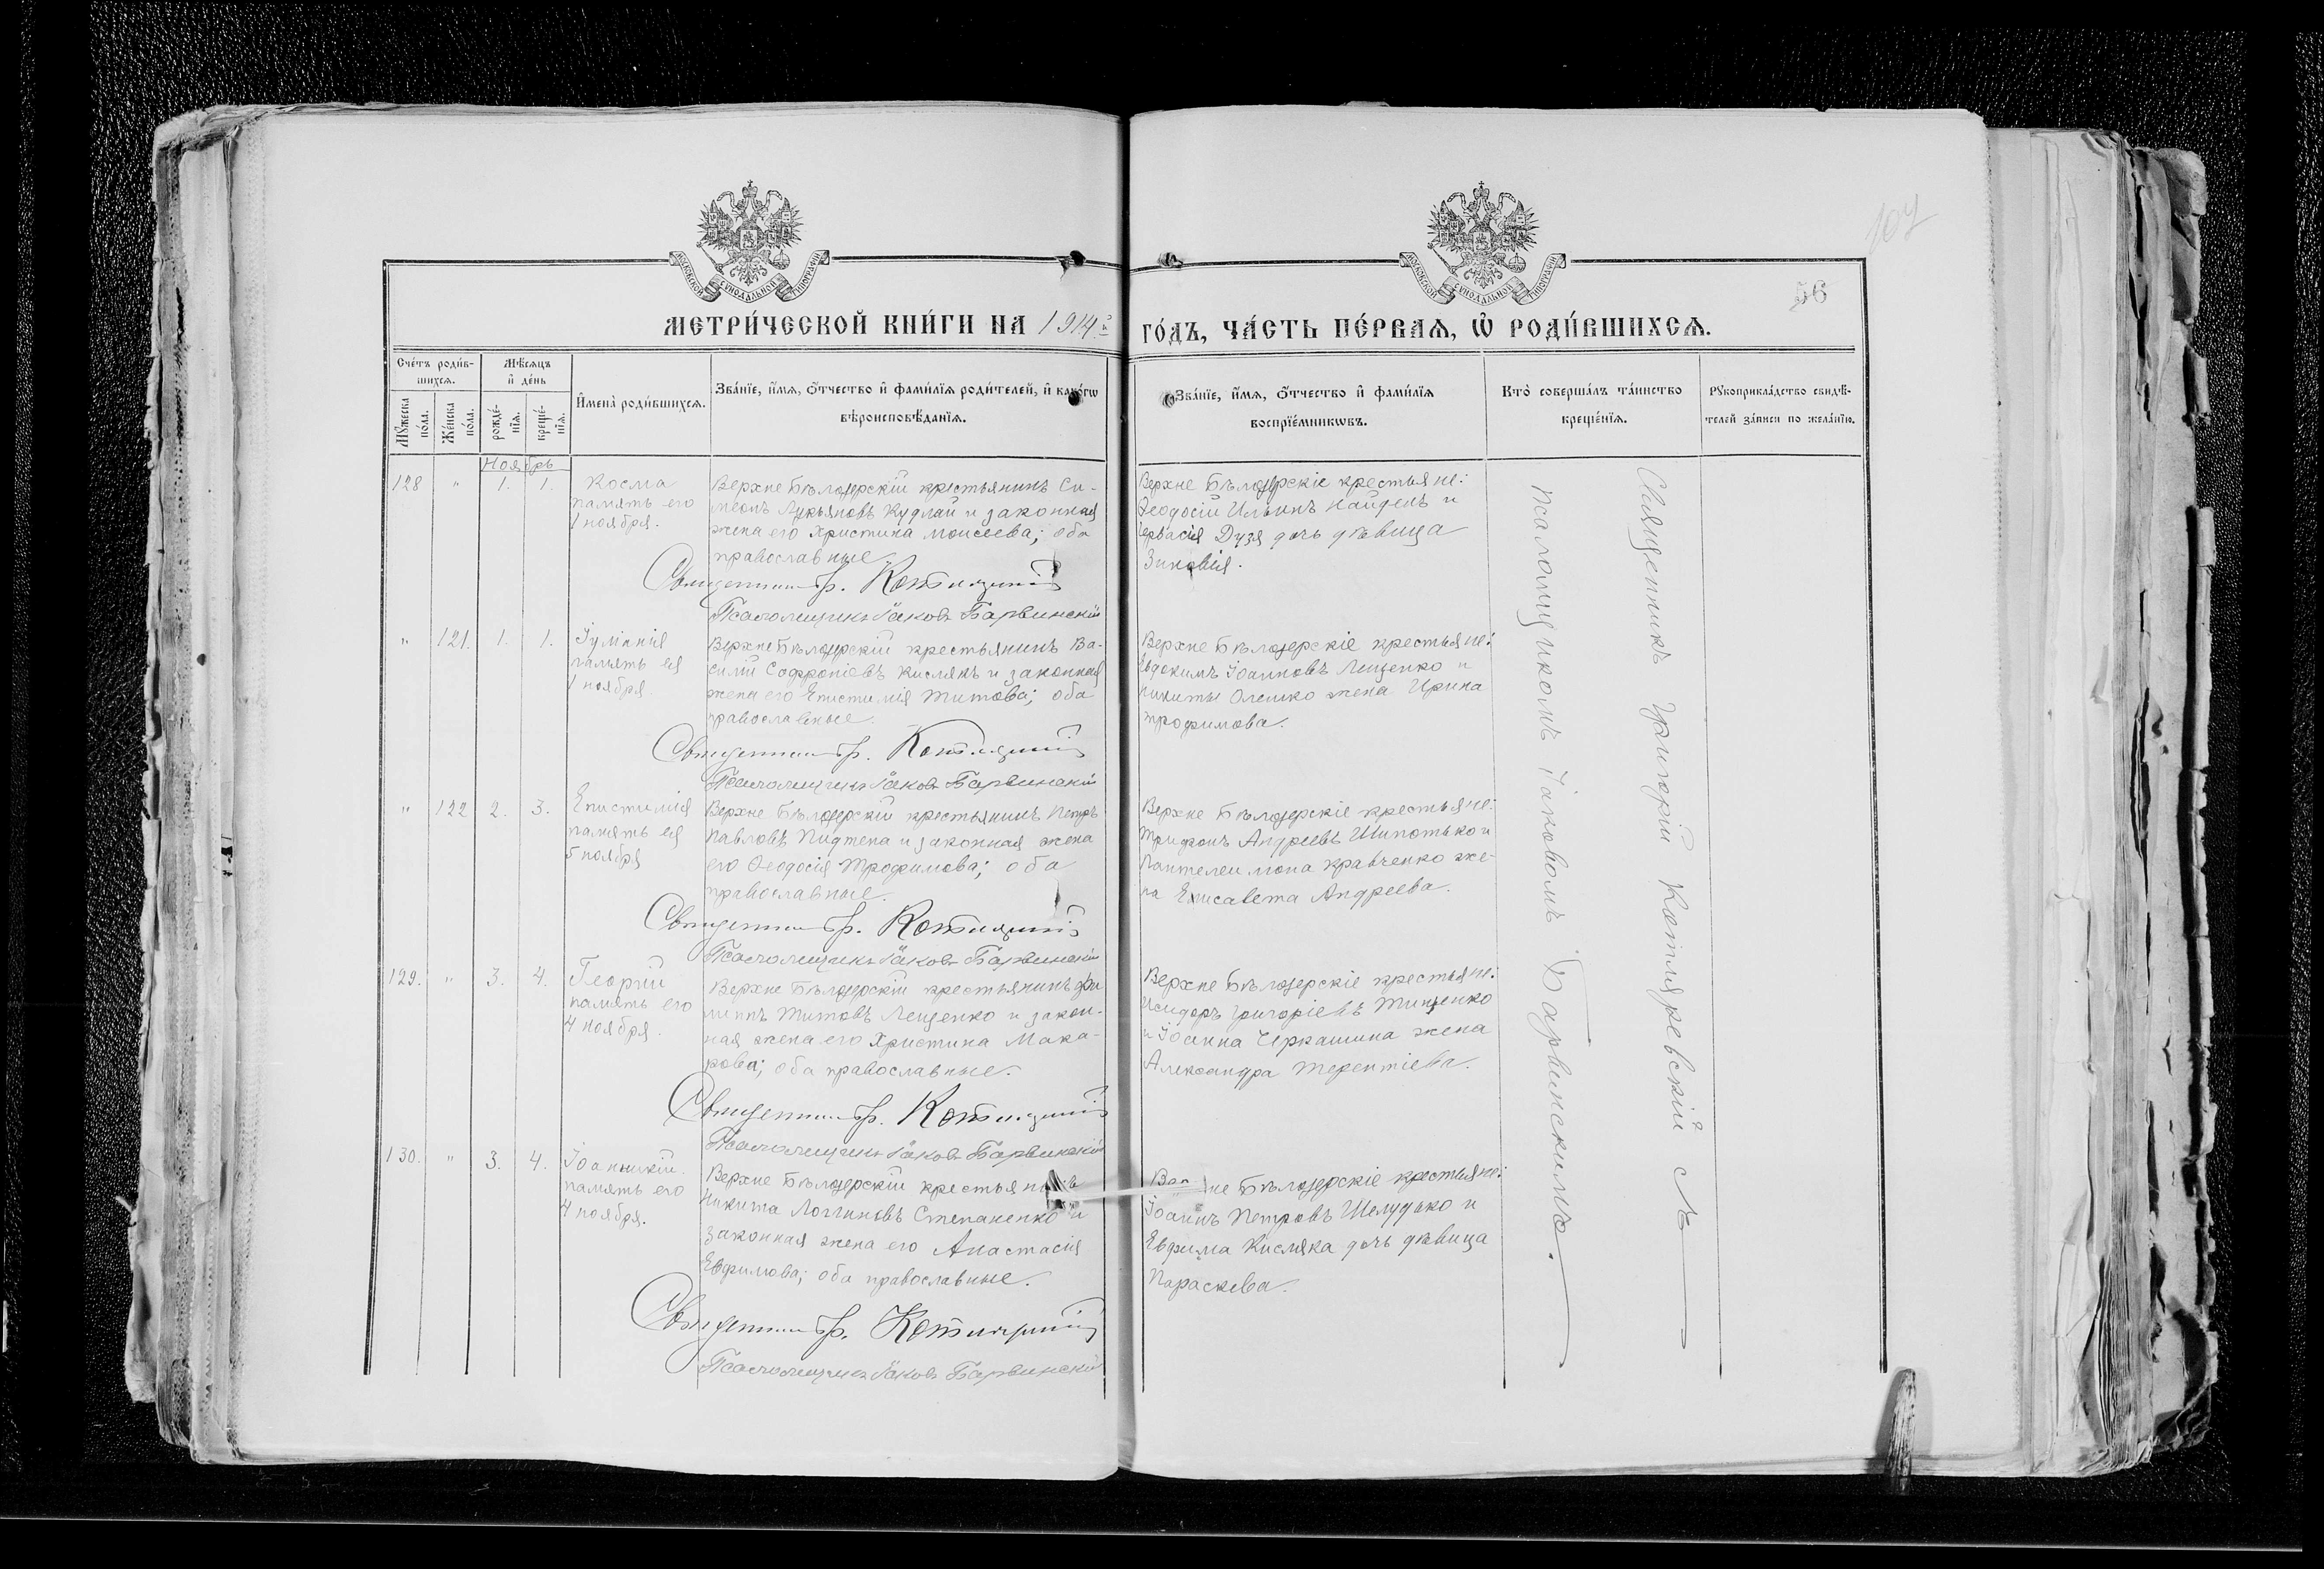 107
56
МОСКОВСКОЙ СѴНОДАЛЬНОЙ ТИПОГРАФІИ
МОСКОВСКОЙ СѴНОДАЛЬНОЙ ТИПОГРАФІИ
МЕТРИ́ЧЕСКОЙ КНИ́ГИ НА 1914 й
ГО́ДЪ, ЧА́СТЬ ПЕ́РВАѦ, Ѡ҆ РОДИ́ВШИХСѦ.
Сче́тъ роди́в-
шихсѧ.
Мѣ́сѧцъ
и҆ де́нь
Мꙋ́жеска
по́ла.
Же́нска
по́ла.
рожде́-
нїѧ.
креще́-
нїѧ.
И҆мена̀ роди́вшихсѧ.
Зва́нїе, и҆́мѧ, ѻ҆́тчество и҆ фами́лїѧ роди́телей, и҆ како́гѡ
вѣроисповѣ́данїѧ.
Зва́нїе, и҆́мѧ, ѻ҆́тчество и҆ фами́лїѧ
воспрїе́мникѡвъ.
Кто̀ соверша́лъ та́инство
креще́нїѧ.
Рꙋкоприкла́дство свидѣ́-
телей за́писи по жела́нїю.
Ноябрь
128 " 1. 1.
Косма
память его
1 ноября.
Верхне Бѣлозерскій крестьянинъ Си-
меонъ Лукьяновъ Кудлай и законная
жена его Христина Моисеева; оба
православные
Священникъ Гр. Котляревскій
Псаломщикъ Іаковъ Барвинскій
Верхне Бѣлозерскіе крестьяне:
Ѳеодосій Ильинъ Найденъ и
Гервасія Дузя дочь дѣвица
Зиновія.
" 121. 1. 1.
Іуліанія
память ея
1 ноября.
Верхне Бѣлозерскій крестьянинъ Ва-
силій Софроніевъ Кислякъ и законная
жена его Епистимія Титова; оба
православные.
Священникъ Гр. Котляревскій
Псаломщикъ Іаковъ Барвинскій
Верхне Бѣлозерскіе крестьяне:
Евдокимъ Іоанновъ Лещенко и
Никиты Олешко жена Ирина
Трофимова.
" 122 2. 3.
Епистимія
память ея
5 ноября
Верхне Бѣлозерскій крестьянинъ Петръ
Павловъ и законная жена
его Ѳеодосія Трофимова; оба
православные.
Священникъ Гр. Котляревскій
Псаломщикъ Іаковъ Барвинскій
Верхне Бѣлозерскіе крестьяне:
Трифонъ Андреевъ Шипотько и
Пантелеимона Кравченко же-
на Елисавета Андреева.
129. " 3. 4.
Георгій
память его
4 ноября.
Верхне Бѣлозерскій крестьянинъ Фи
липпъ Титовъ Лещенко и закон-
ная жена его Христина Мака-
рова; оба православные.
Священникъ Гр. Котляревскій
Псаломщикъ Іаковъ Барвинскій
Верхне Бѣлозерскіе крестьяне:
Исидоръ Григоріевъ Тищенко
и Іоанна Черкашина жена
Александра Терентіева.
130. " 3. 4.
Іоанникій.
память его
4 ноября.
Верхне Бѣлозерскій крестьянинъ
Никита Логгиновъ Степаненко и
законная жена его Анастасія
Евфимова; оба православные.
Священникъ Гр. Котляревскій
Псаломщикъ Іаковъ Барвинскій
не Бѣлозерскіе крестьяне:
Іоаннъ Петровъ Шелудько и
Евфима Кисляка дочь дѣвица
Параскева.
Священникъ Григорій Котляревскій съ
псаломщикомъ Іаковомъ Барвинскимъ.